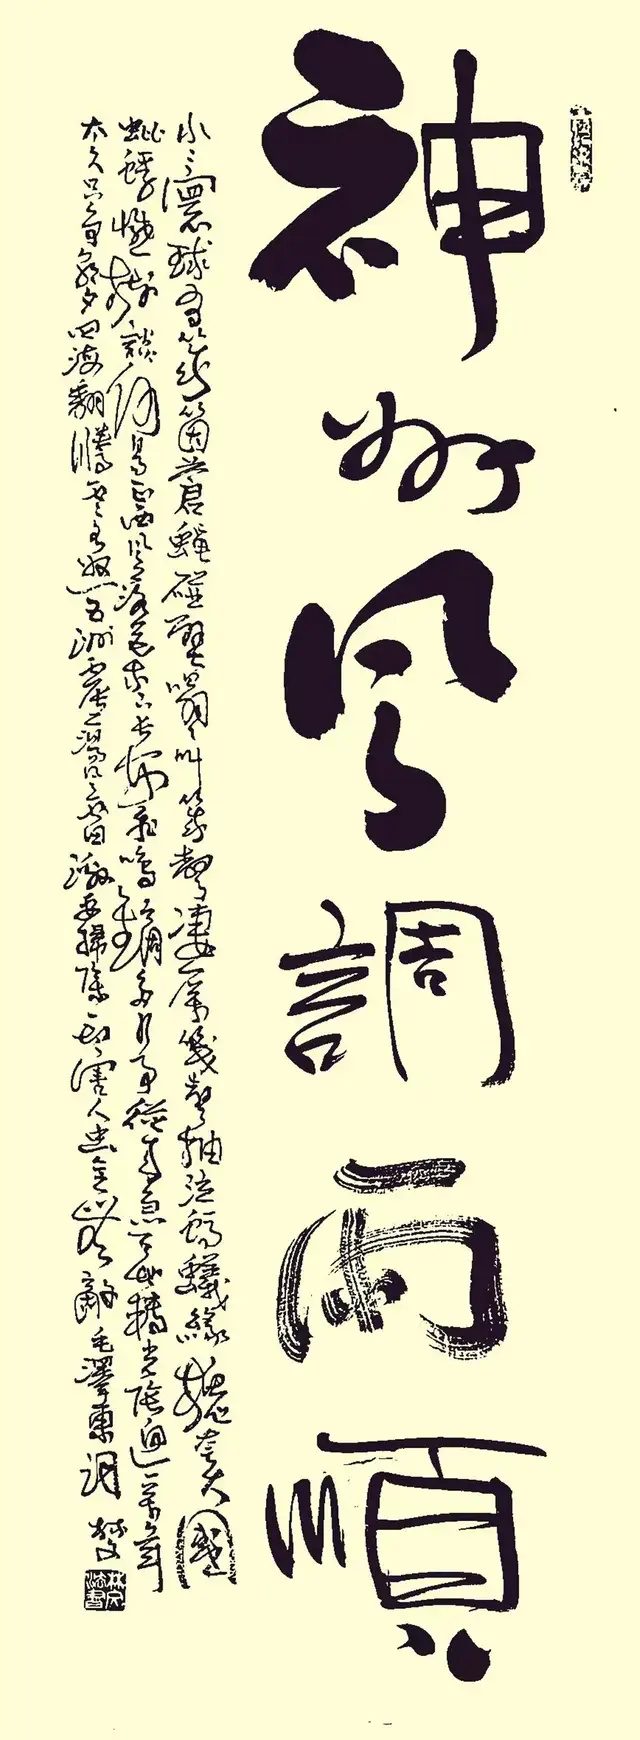 神州風調雨順
小小寰球有幾箇蒼蠅碰壁嗡嗡叫幾聲凄厲幾聲抽泣螞蟻緣槐夸大國
蚍蜉撼樹談何易正西風落葉下長安飛鳴鏑多少事從來急天地轉光陰迫一萬年
太久只爭朝夕四海翻騰雲水怒五洲震蕩風雷激要掃除一切害人虫全無敵毛澤東詞